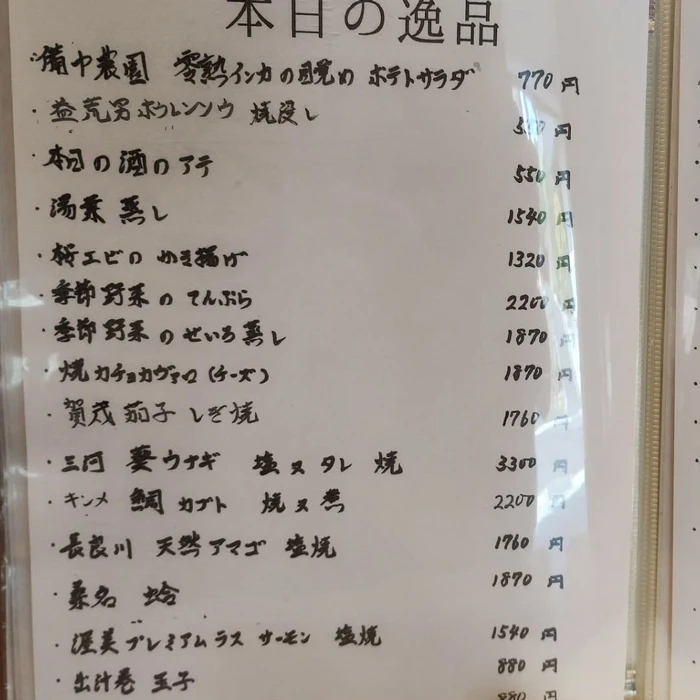 本日の逸品
・備中農園 零熟インカの目覚め ポテトサラダ 770円
・益荒男ホウレンソウ 焼浸し 550円
・本日の酒のアテ 550円
・湯葉蒸し 1540円
・桜エビの かき揚げ 1320円
・季節野菜の てんぷら 2200円
・季節野菜のせいろ蒸し 1870円
・焼カチョカヴァロ(チーズ) 1870円
・賀茂茄子しぎ焼 1760円
・三河 葵ウナギ 塩又タレ 焼 3300円
・キンメ 鯛 カブト 焼又煮 2200円
・長良川 天然アマゴ 塩焼 1760円
・桑名 蛤 1870円
・渥美プレミアムラスサーモン 塩焼 1540円
・出汁巻 玉子 880円
880円